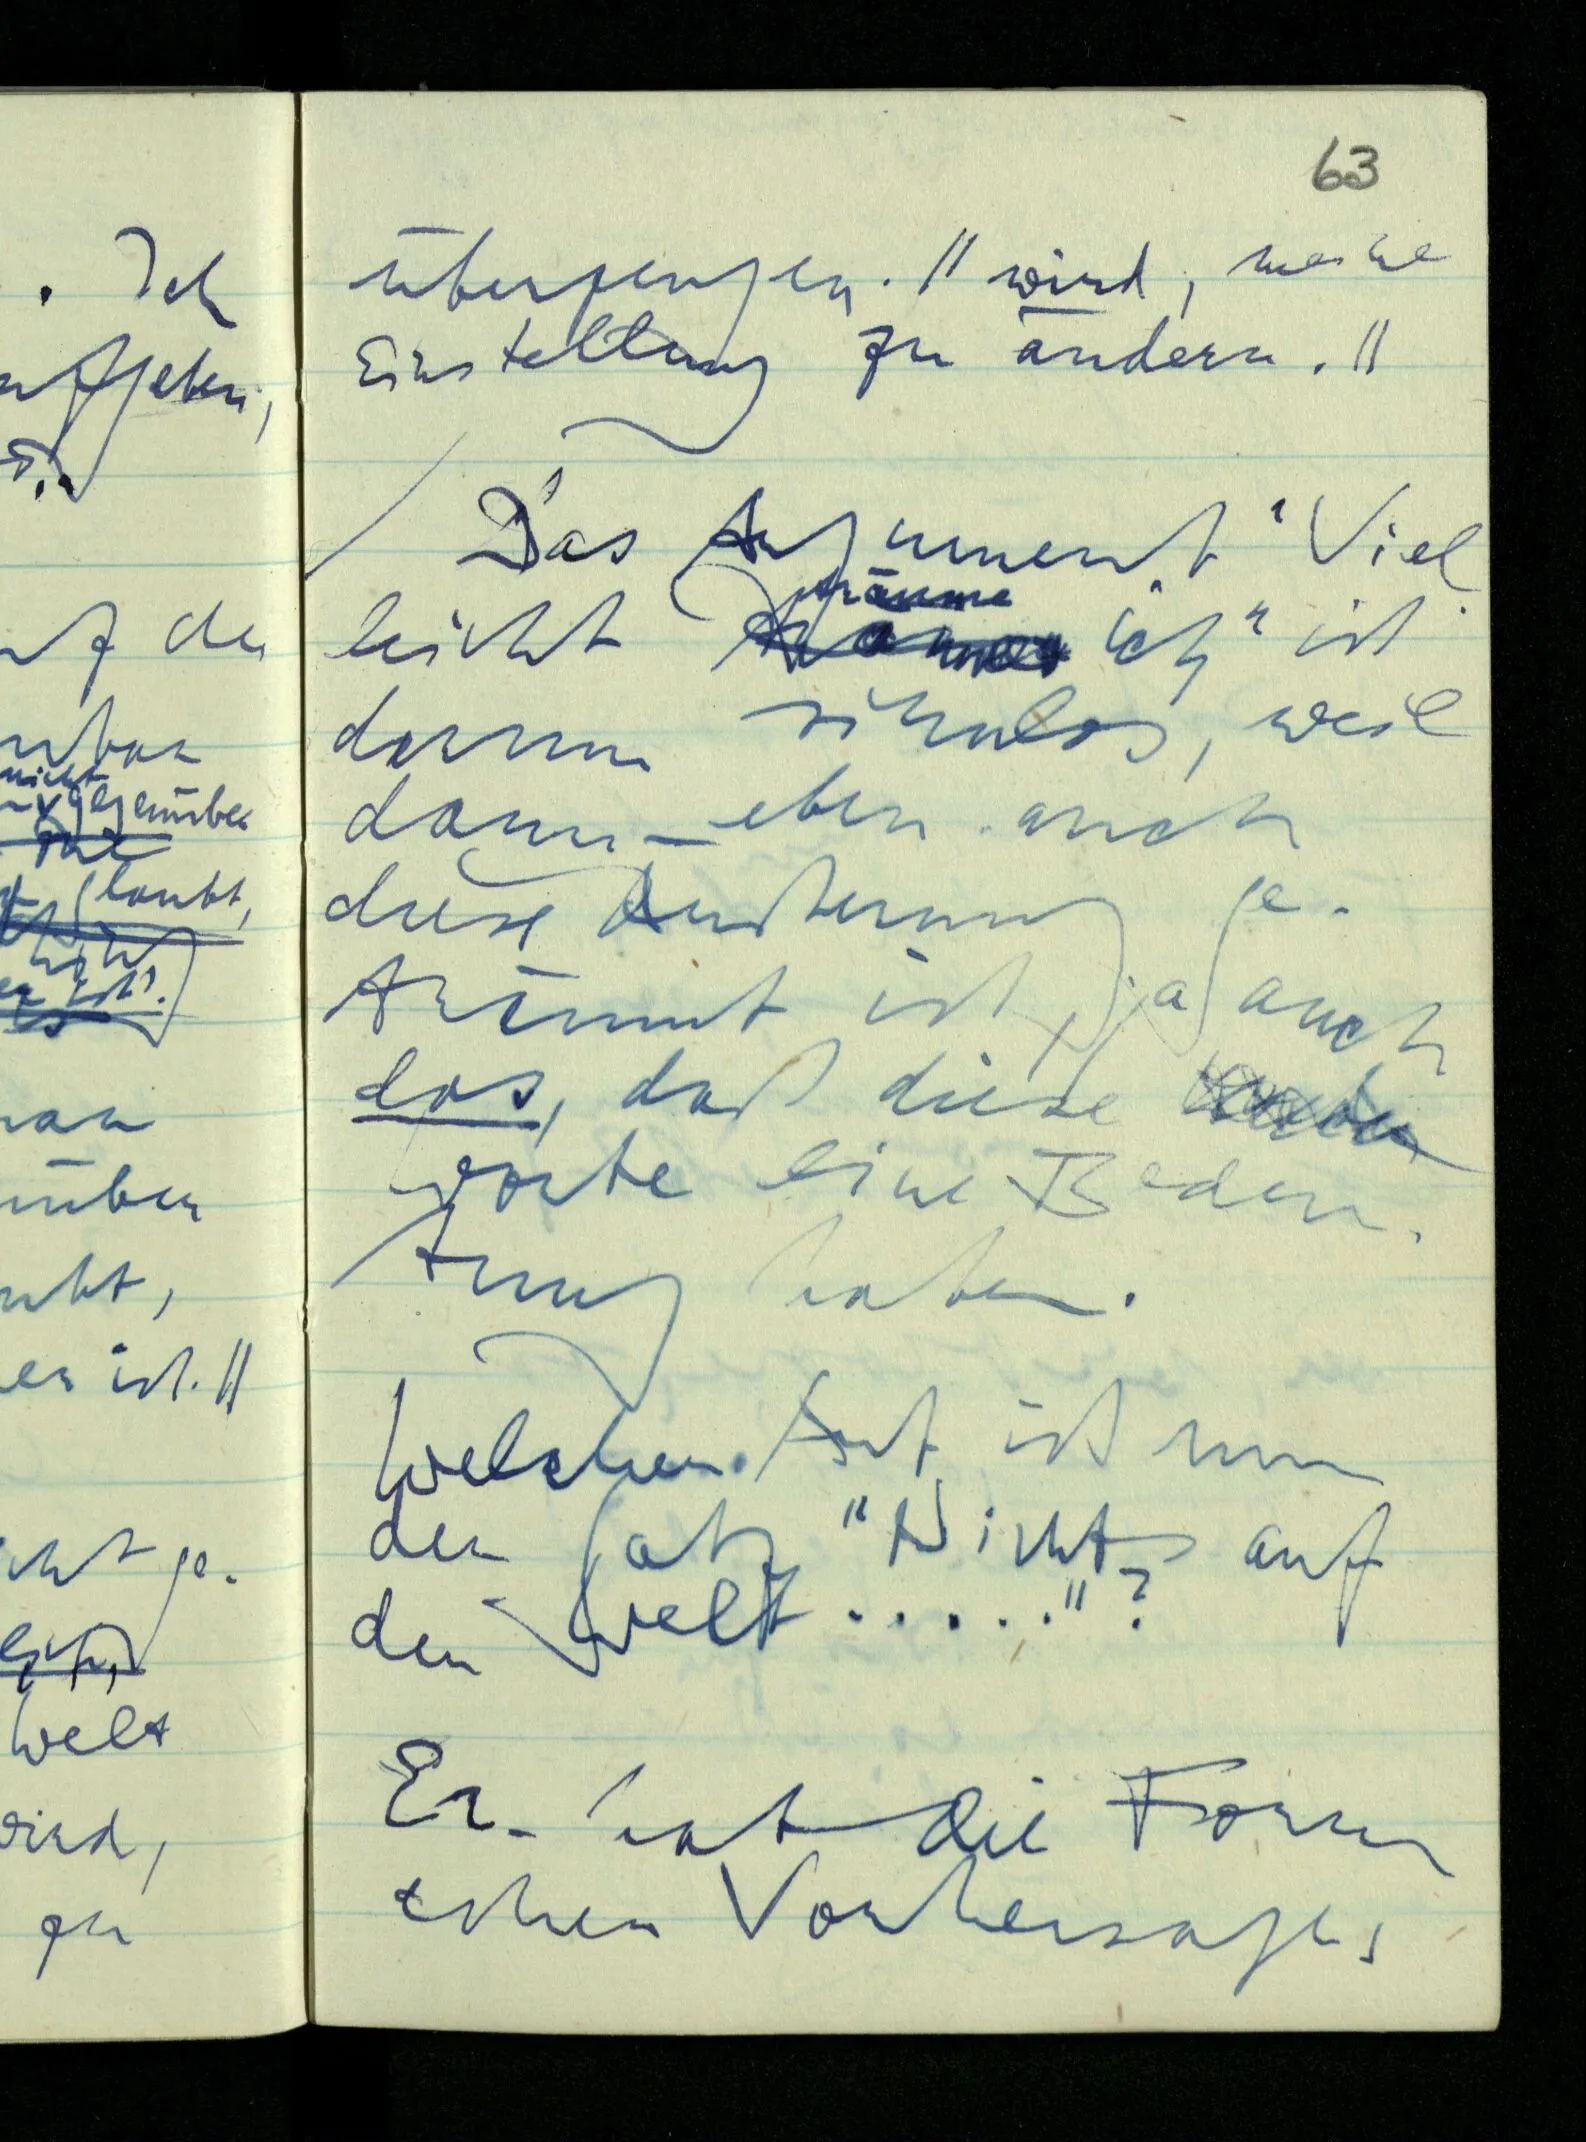 63
. Ich
aufgeben,
auf der
nicht
gegenüber
glaubt,
man
über
ubt,
er ist. ||
icht ge-
Welt
wird,
zu
überzeugen. || wird, meine
Einstellung zu ändern. ||
/ Das Argument "Viel
leicht träume ich" ist
darum sinnlos, weil
dann eben auch
diese Äußerung ge-
träumt ist, ja auch
das, daß diese
Worte eine Bedeu-
tung haben.
Welcher Art ist nun
der Satz "Nichts auf
der Welt ....."?
Er hat die Form
einer Vorhersage,